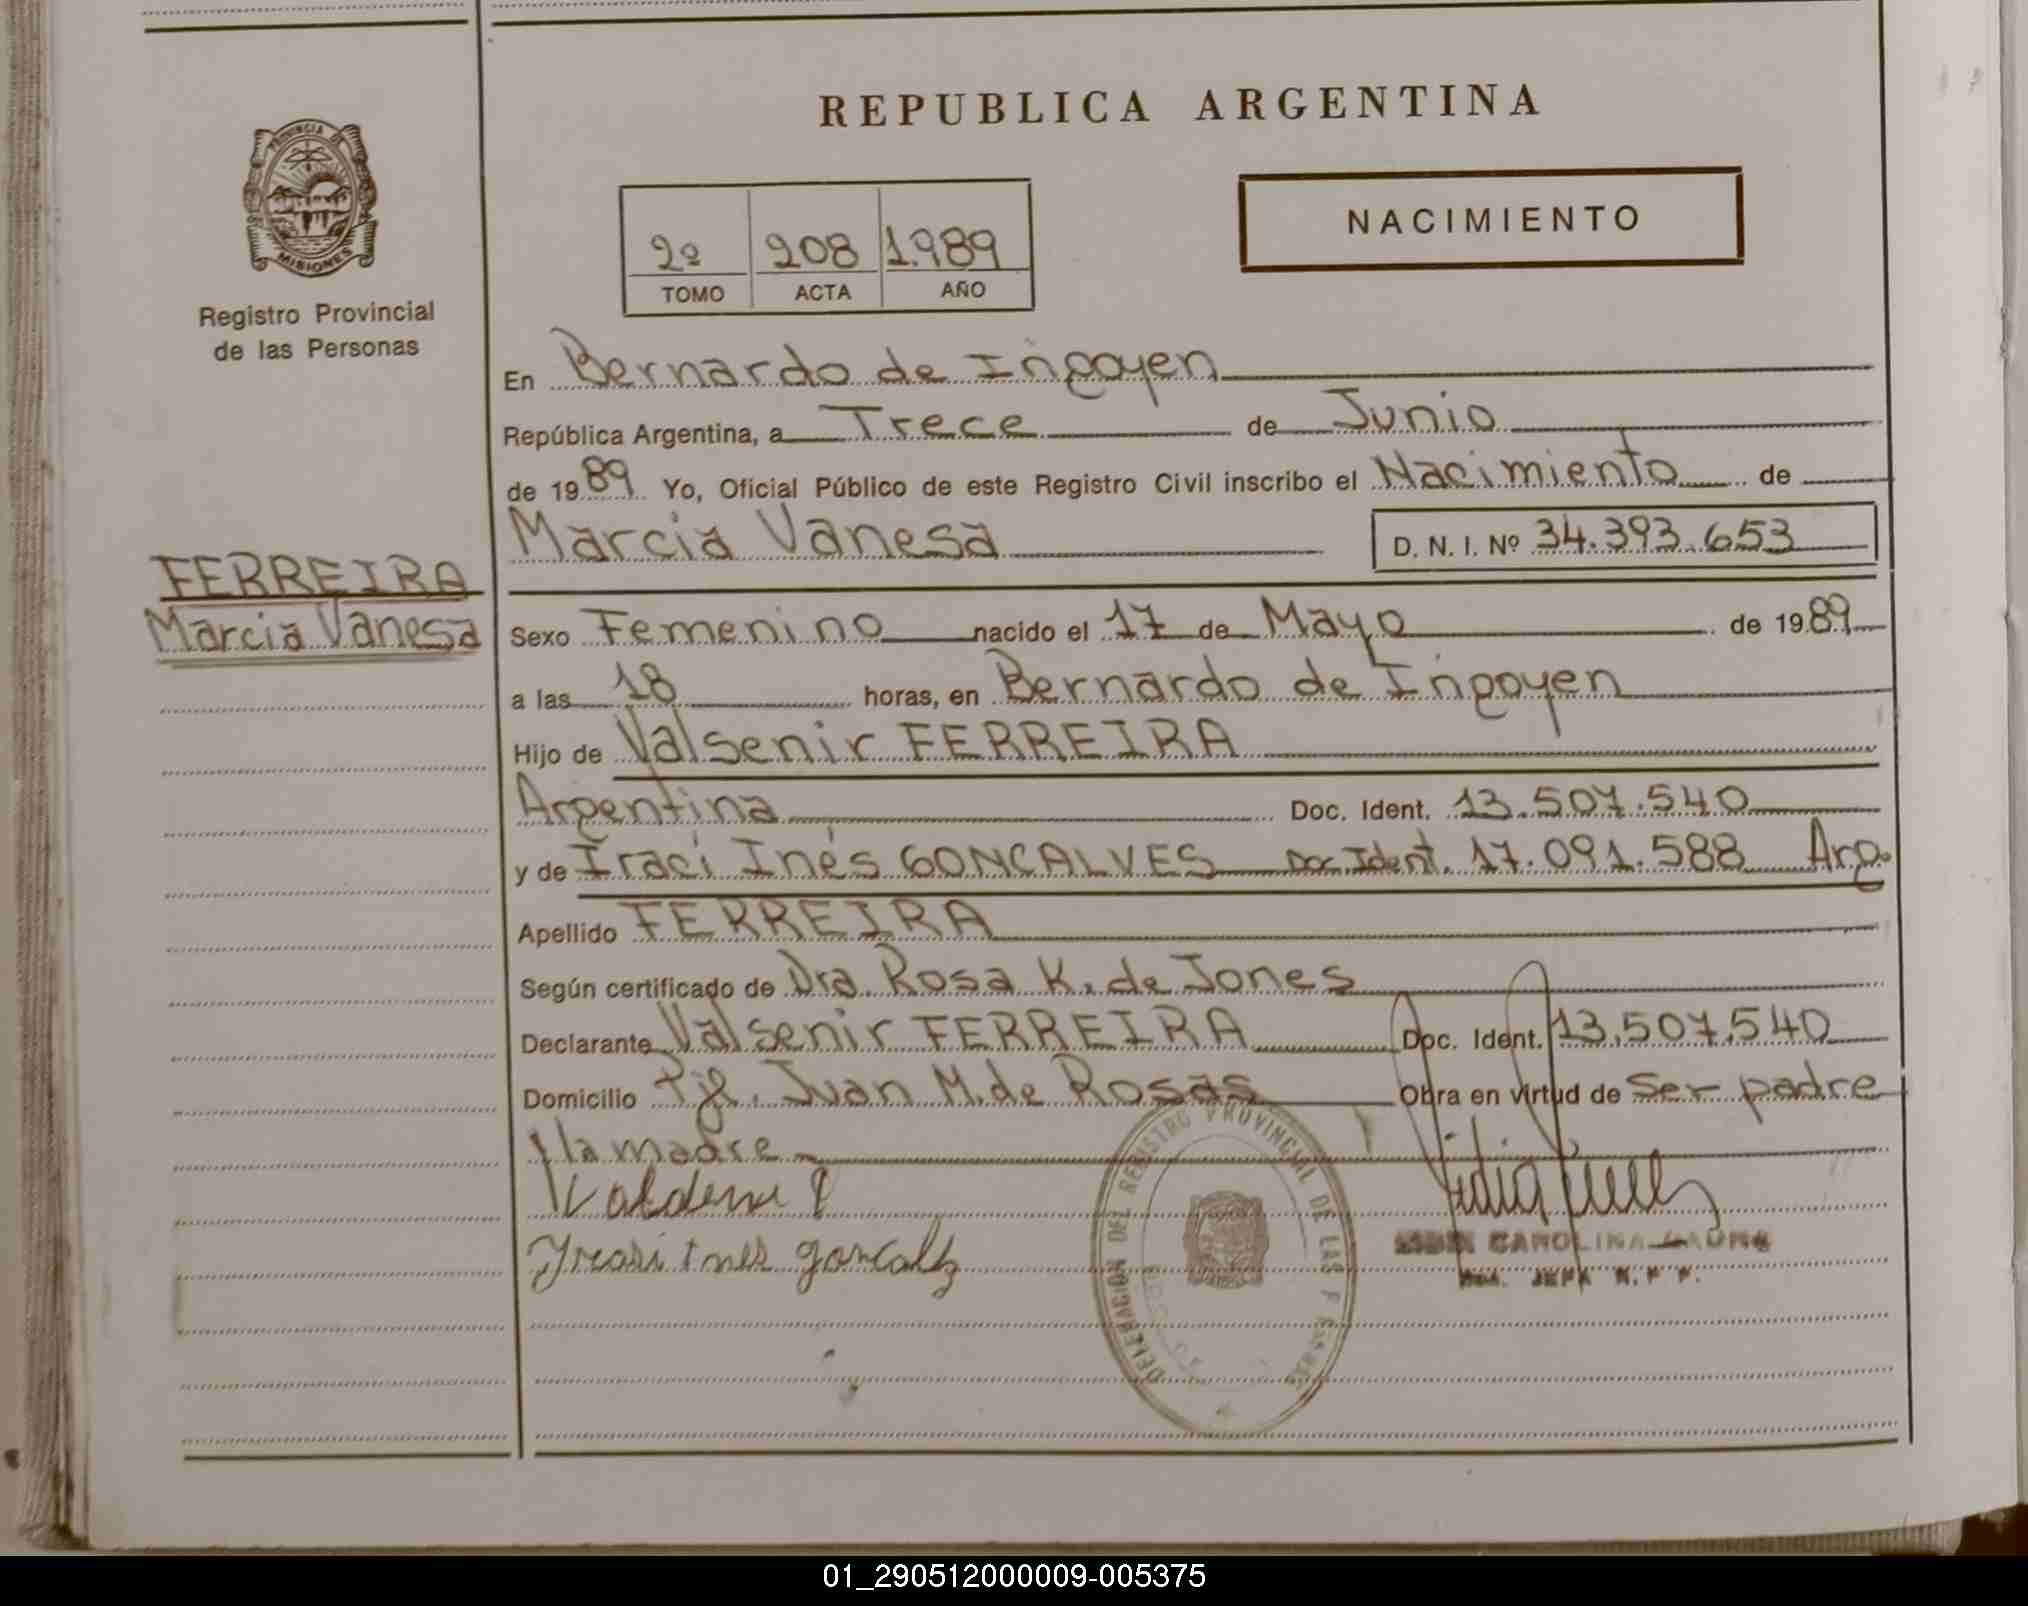 REPUBLICA ARGENTINA
PROVINCIA DE
MISIONES
Registro Provincial
de las Personas
NACIMIENTO
2º 208 1.989
TOMO ACTA AÑO
En Bernardo de Irigoyen
República Argentina, a Trece de Junio
de 1989 Yo, Oficial Público de este Registro Civil inscribo el Nacimiento de
Marcia Vanesa D. N. I. Nº 34.393.653
FERREIRA
Marcia Vanesa
Sexo Femenino nacido el 17 de Mayo de 1989
a las 18 horas, en Bernardo de Irigoyen
Hijo de Valsenir FERREIRA
Argentina Doc. Ident. 13.507.540
y de Iraci Inés GONCALVES Doc. Ident. 17.091.588 Arg.
Apellido FERREIRA
Según certificado de Dra. Rosa K. de Jones
Declarante Valsenir FERREIRA Doc. Ident. 13.507.540
Domicilio Pje. Juan M. de Rosas Obra en virtud de Ser padre
y la madre
Iraci Ines
DELEGACION DEL REGISTRO PROVINCIAL DE LAS
CAROLINA
JEFA
01_290512000009-005375